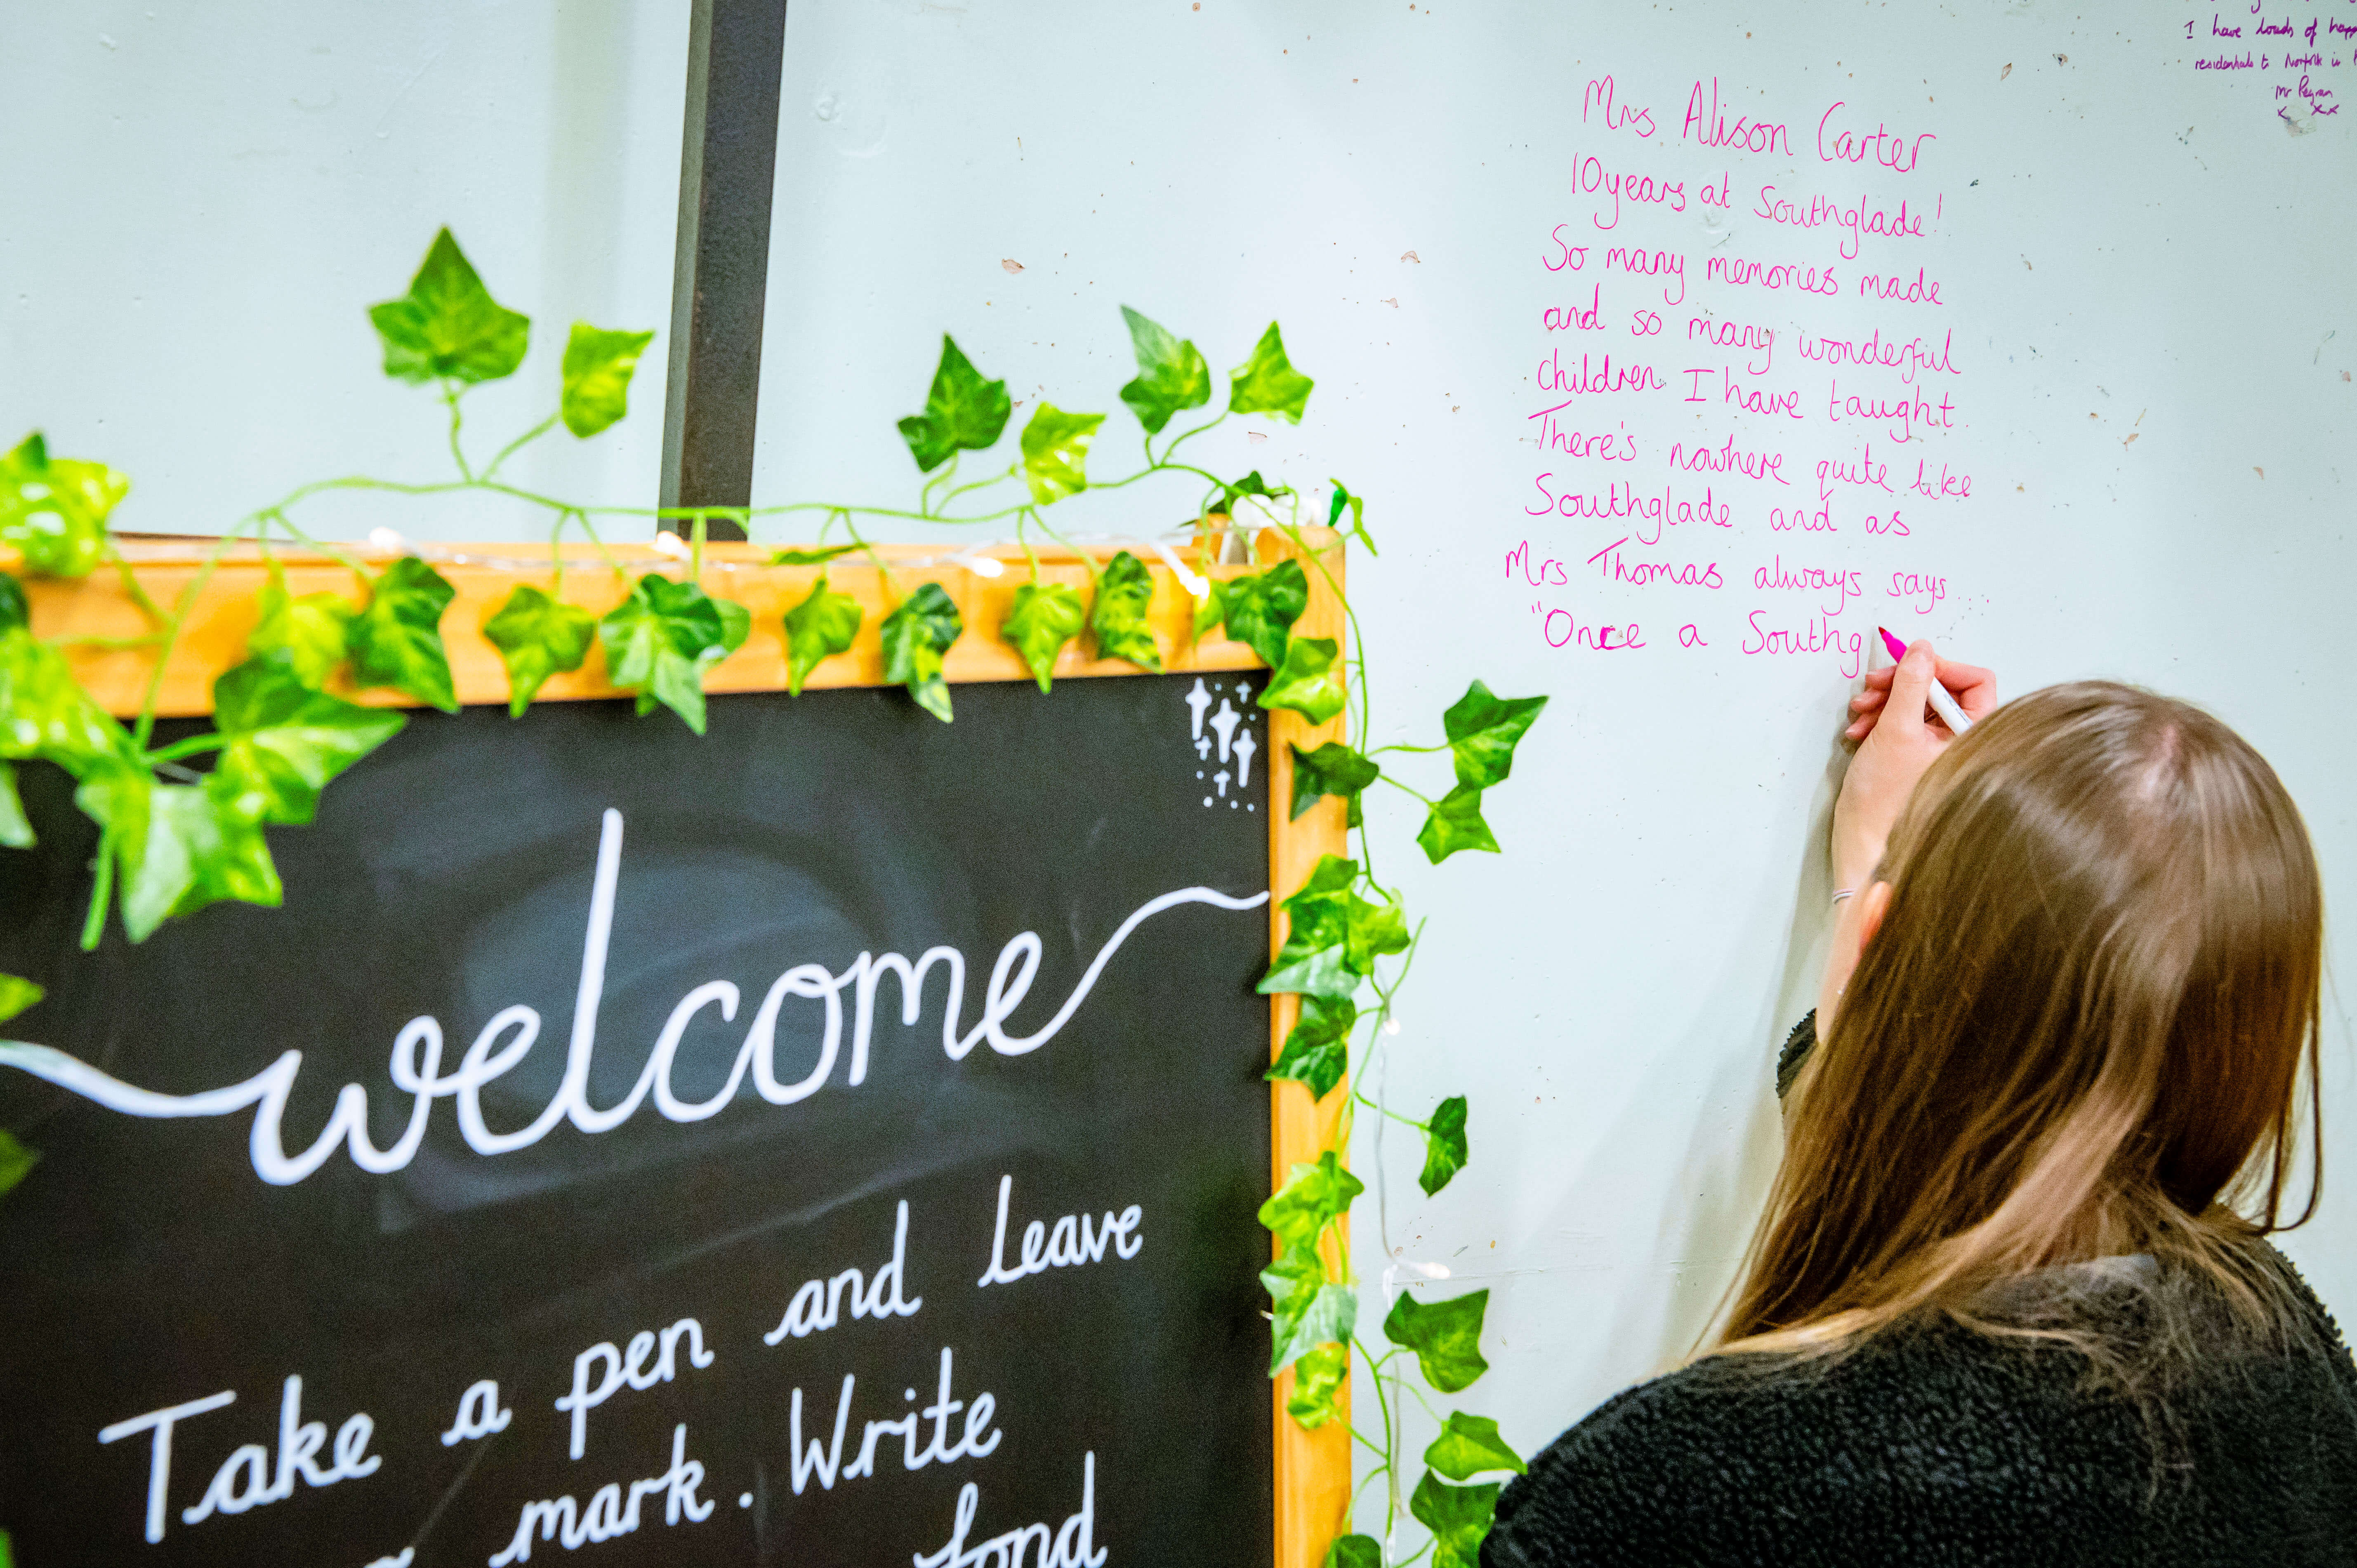 welcome
Take a pen and leave
mark. Write
fond
Mrs Alison Carter
10 years at Southglade!
So many memories made
and so many wonderful
children I have taught.
There's nowhere quite like
Southglade and as
Mrs Thomas always says...
"Once a Southg
I have loads of
residentials to Norfolk in
Mr
x xx